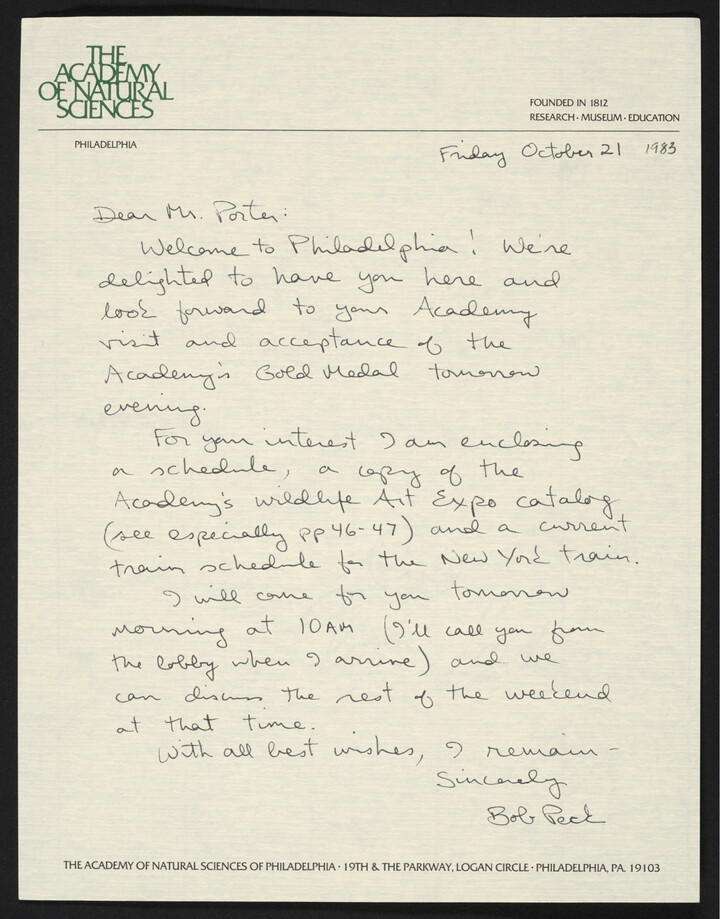 THE
ACADEMY
OF NATURAL
SCIENCES
FOUNDED IN 1812
RESEARCH · MUSEUM · EDUCATION
PHILADELPHIA
Friday October 21 1983
Dear Mr. Porter:
Welcome to Philadelphia! We're
delighted to have you here and
look forward to your Academy
visit and acceptance of the
Academy's Gold Medal tomorrow
evening.
For your interest I am enclosing
a schedule, a copy of the
Academy's wildlife Art Expo catalog
(see especially pp 46-47) and a current
train schedule for the New York train.
I will come for you tomorrow
morning at 10 AM (I'll call you from
the lobby when I arrive) and we
can discuss the rest of the weekend
at that time.
With all best wishes, I remain -
Sincerely
Bob Peck
THE ACADEMY OF NATURAL SCIENCES OF PHILADELPHIA · 19TH & THE PARKWAY, LOGAN CIRCLE · PHILADELPHIA, PA. 19103